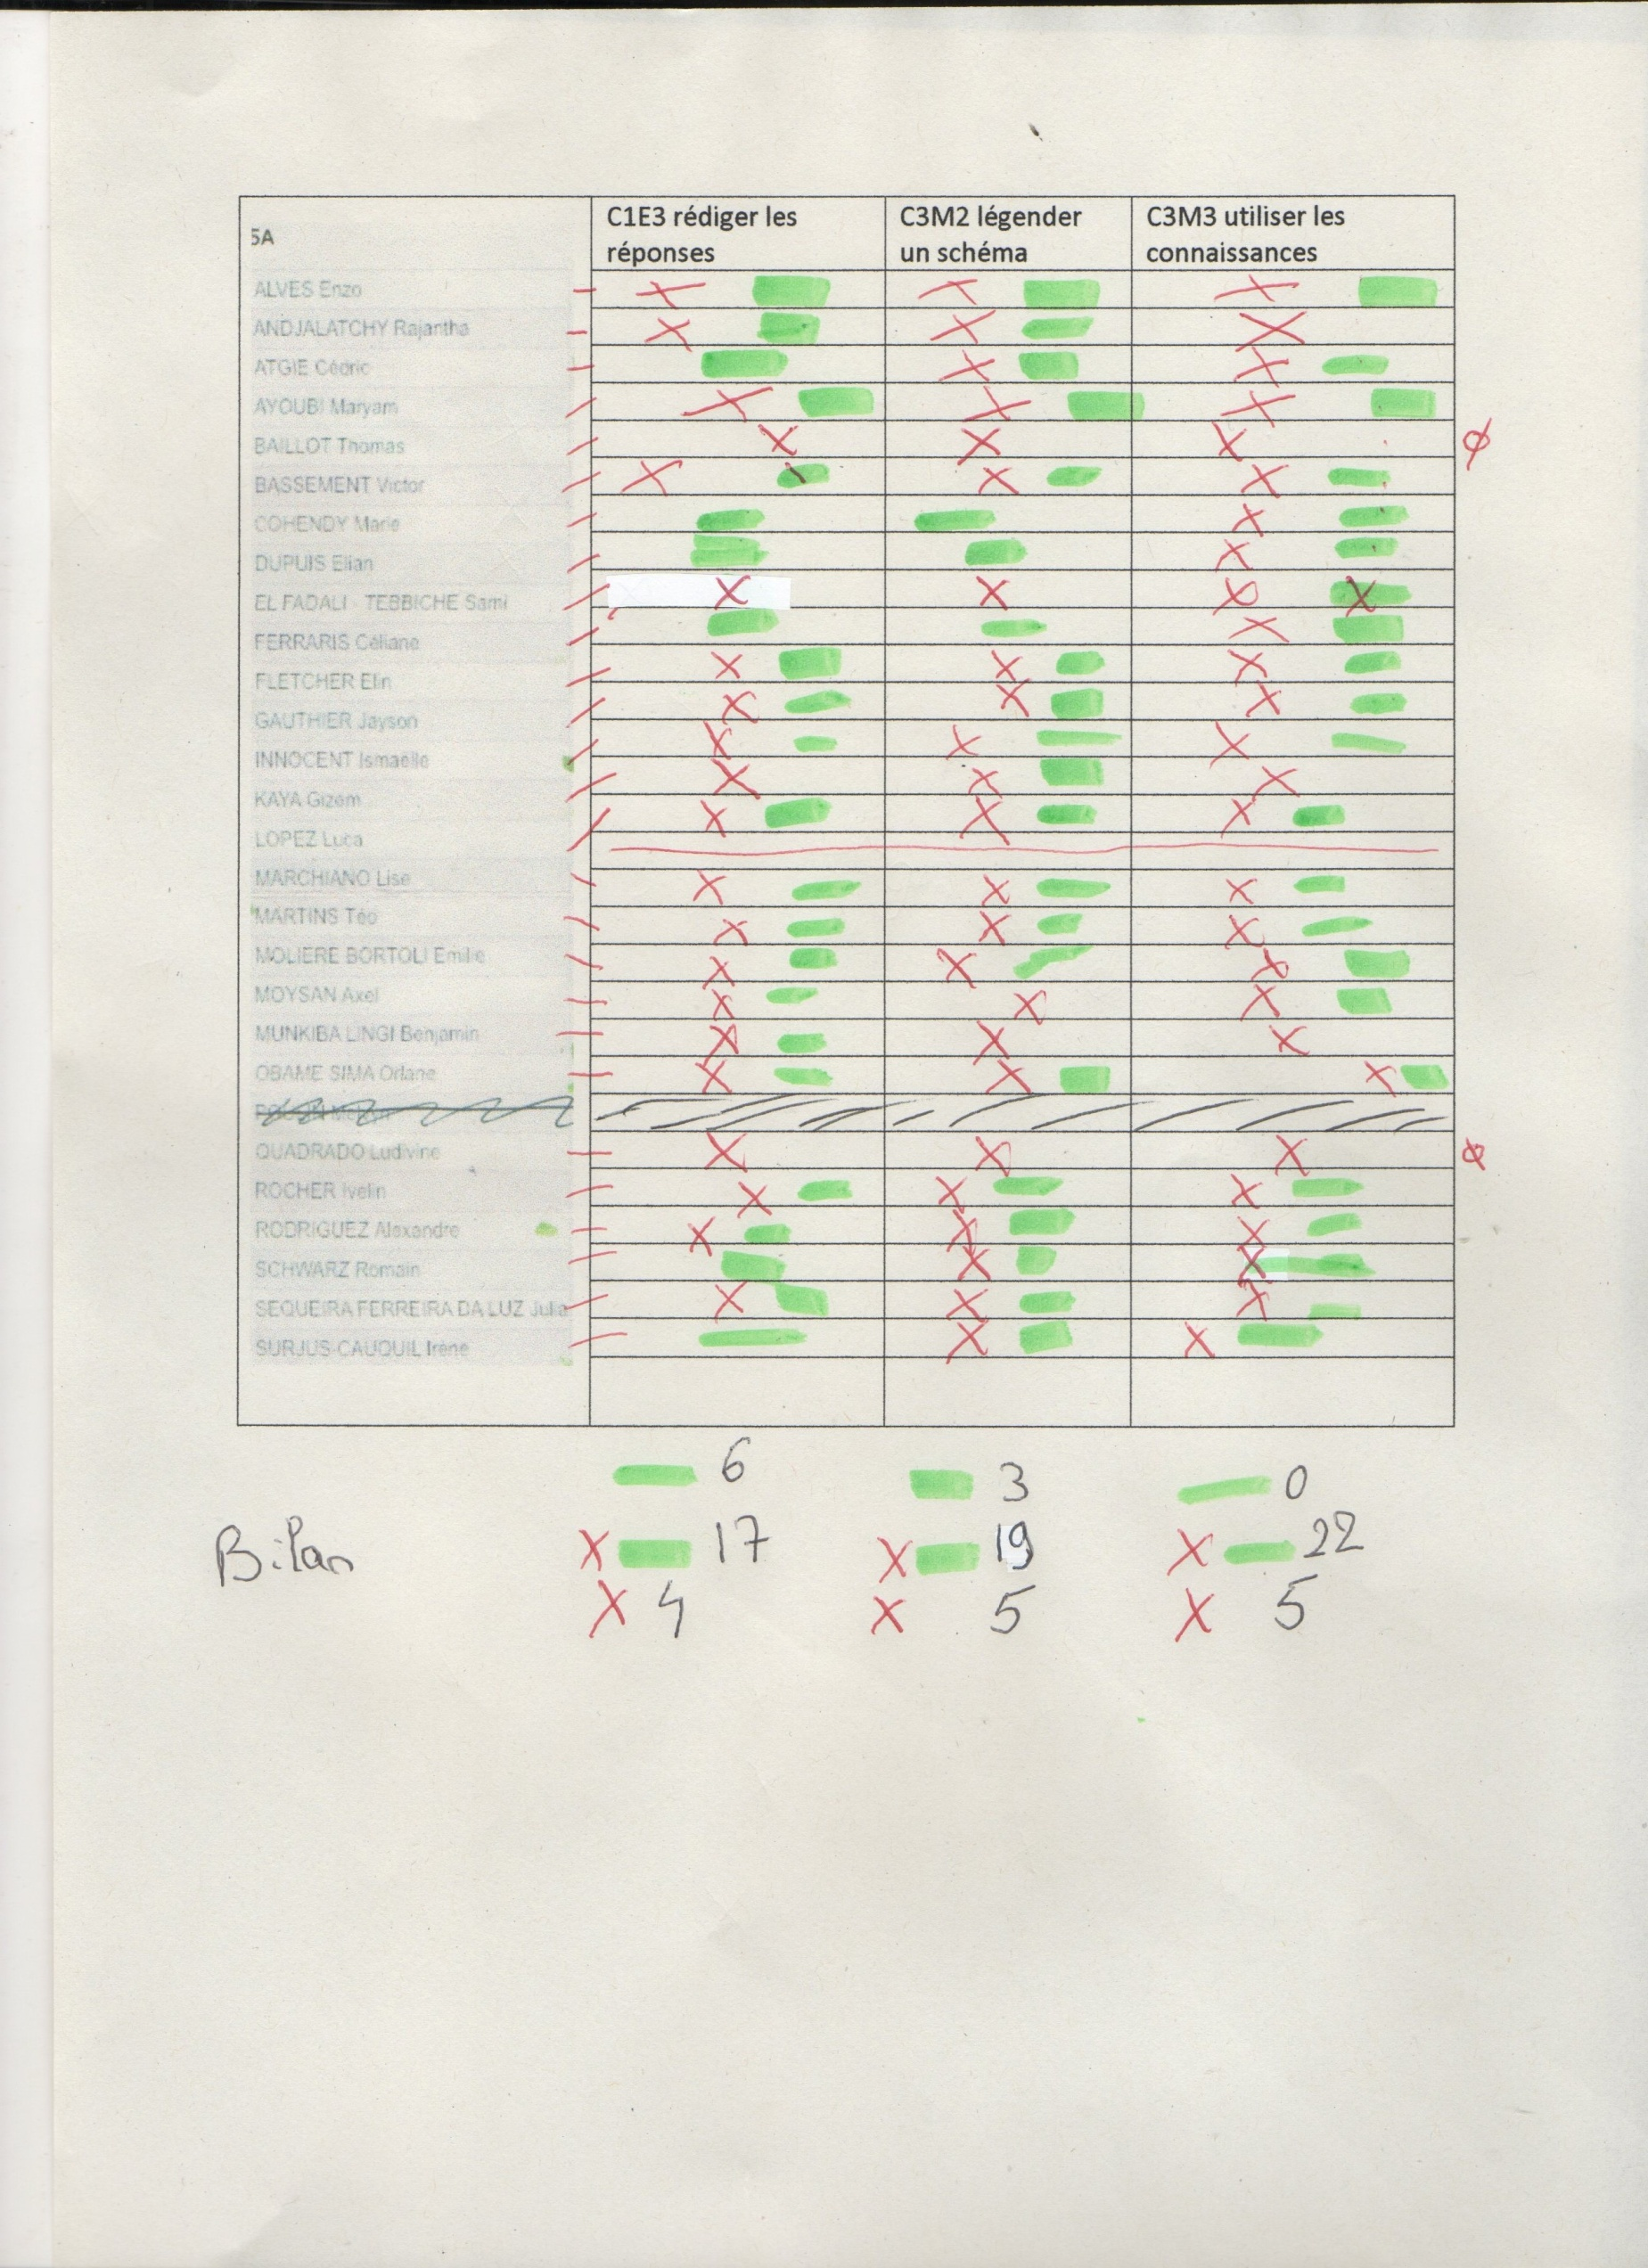 5A
C1E3 rédiger les réponses
C3M2 légender un schéma
C3M3 utiliser les connaissances
ALVES Enzo
ANDJALATCHY Rajantha
ATGIE Cédric
AYOUBI Maryam
BAILLOT Thomas
BASSEMENT Victor
COHENDY Marie
DUPUIS Elian
EL FADALI - TEBBICHE Sami
FERRARIS Céliane
FLETCHER Elin
GAUTHIER Jayson
INNOCENT Ismaëlle
KAYA Gizem
LOPEZ Luca
MARCHIANO Lise
MARTINS Téo
MOLIERE BORTOLI Emilie
MOYSAN Axel
MUNKIBA LINGI Benjamin
OBAME SIMA Orlane
QUADRADO Ludivine
ROCHER Ivelin
RODRIGUEZ Alexandre
SCHWARZ Romain
SEQUEIRA FERREIRA DA LUZ Julia
SURJUS-CAUQUIL Irène
6 3 0
Bilan
X 17 X 19 X 22
X 4 X 5 X 5